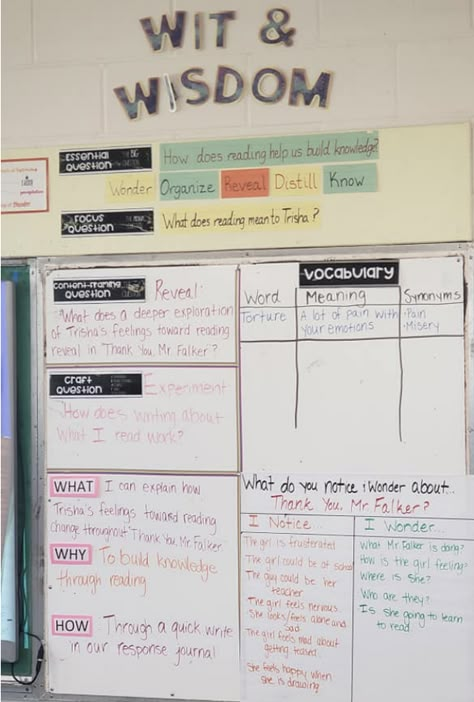 WIT &
WISDOM
Essential
Question
How does reading help us build knowledge?
Wonder Organize Reveal Distill Know
Focus
Question
What does reading mean to Trisha?
Content-Framing
Question
Reveal
What does a deeper exploration
of Trisha's feelings toward reading
reveal in "Thank You, Mr. Falker"?
Craft
Question
Experiment
How does writing about
what I read work?
WHAT I can explain how
Trisha's feelings toward reading
change throughout "Thank You, Mr. Falker"
WHY To build knowledge
through reading
HOW Through a quick write
in our response journal
Vocabulary
Word Meaning Synonyms
Torture A lot of pain with your emotions ·Pain ·Misery
What do you notice & Wonder about...
Thank You, Mr. Falker?
I Notice...
The girl is frusterated
The girl could be at school
The guy could be her
teacher
The girl feels nervous
She looks/feels alone and
sad
The girl feels mad about
getting teased
She feels happy when
she is drawing
I Wonder...
What Mr. Falker is doing?
How is the girl feeling?
Where is she?
Who are they?
Is she going to learn
to read